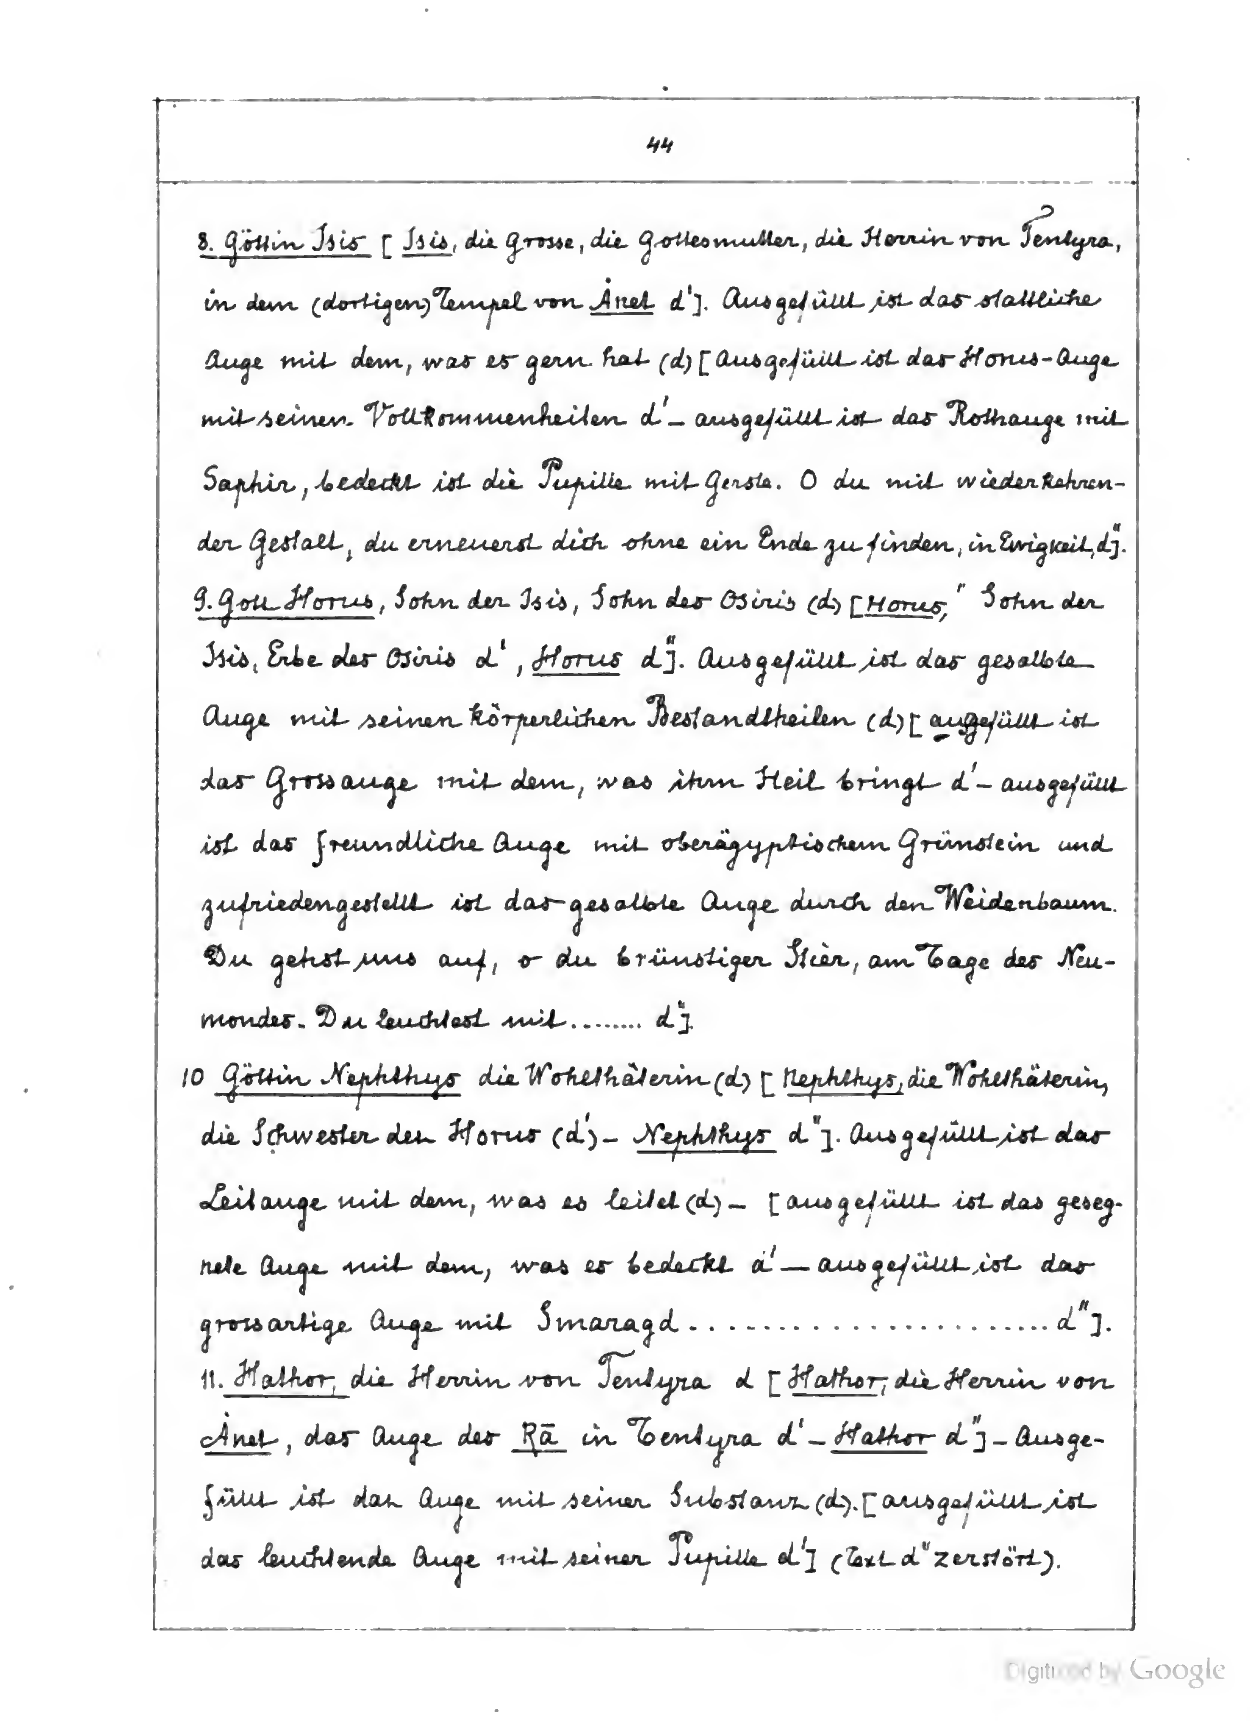 44
8. Göttin Isis [Isis, die Grosse, die Gottesmutter, die Herrin von Tentyra,
in dem (dortigen) Tempel von Ȧnet d']. Ausgefüllt ist das stattliche
Auge mit dem, was es gern hat (d) [Ausgefüllt ist das Horus-Auge
mit seinen Vollkommenheiten d' – ausgefüllt ist das Rothauge mit
Saphir, bedeckt ist die Pupille mit Gerste. O du mit wiederkehren-
der Gestalt, du erneuerst dich ohne ein Ende zu finden, in Ewigkeit, d"].
9. Gott Horus, Sohn der Isis, Sohn des Osiris (d) [Horus," Sohn der
Isis, Erbe des Osiris d', Horus d"]. Ausgefüllt ist das gesalbte
Auge mit seinen körperlichen Bestandtheilen (d) [ausgefüllt ist
das Grossauge mit dem, was ihm Heil bringt d' – ausgefüllt
ist das freundliche Auge mit oberägyptischem Grünstein und
zufriedengestellt ist das gesalbte Auge durch den Weidenbaum.
Du gehst uns auf, o du brünstiger Stier, am Tage des Neu-
mondes. Du leuchtest mit ........ d"].
10 Göttin Nephthys die Wohlthäterin (d) [Nephthys, die Wohlthäterin,
die Schwester des Horus (d') – Nephthys d"]. Ausgefüllt ist das
Leitauge mit dem, was es leitet (d) – [ausgefüllt ist das geseg-
nete Auge mit dem, was es bedeckt d' – ausgefüllt ist das
grossartige Auge mit Smaragd ....................... d"].
11. Hathor, die Herrin von Tentyra d [Hathor, die Herrin von
Ȧnet, das Auge des Rā in Tentyra d' – Hathor d"] – Ausge-
füllt ist das Auge mit seiner Substanz (d). [ausgefüllt ist
das leuchtende Auge mit seiner Pupille d'] (Text d" zerstört).
Digitized by Google